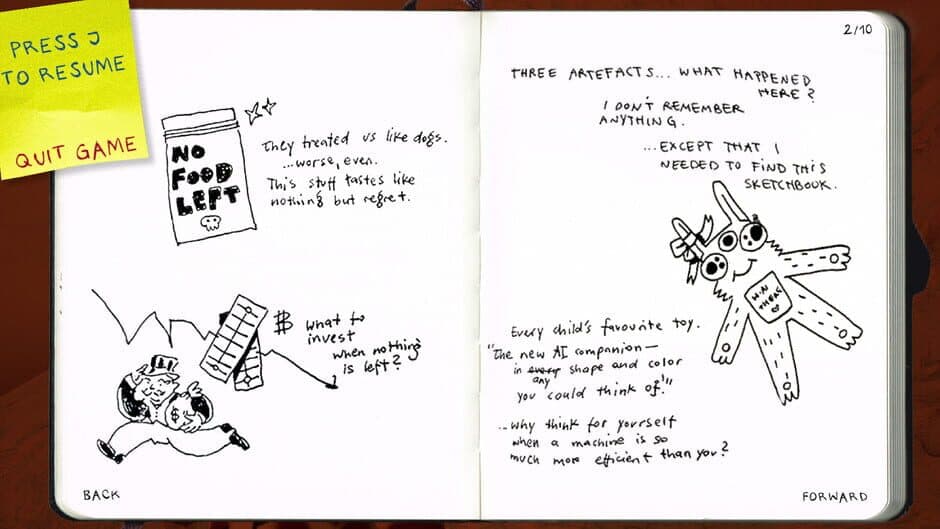 PRESS J
TO RESUME
QUIT GAME
NO
FOOD
LEFT
They treated us like dogs.
...worse, even.
This stuff tastes like
nothing but regret.
$
what to
invest
when nothing
is left?
$
BACK
2/10
THREE ARTEFACTS... WHAT HAPPENED
HERE?
I DON'T REMEMBER
ANYTHING.
...EXCEPT THAT I
NEEDED TO FIND THIS
SKETCHBOOK.
Every child's favourite toy.
"The new AI companion—
in every shape and color
any
you could think of!"
...why think for yourself
when a machine is so
much more efficient than you?
FORWARD